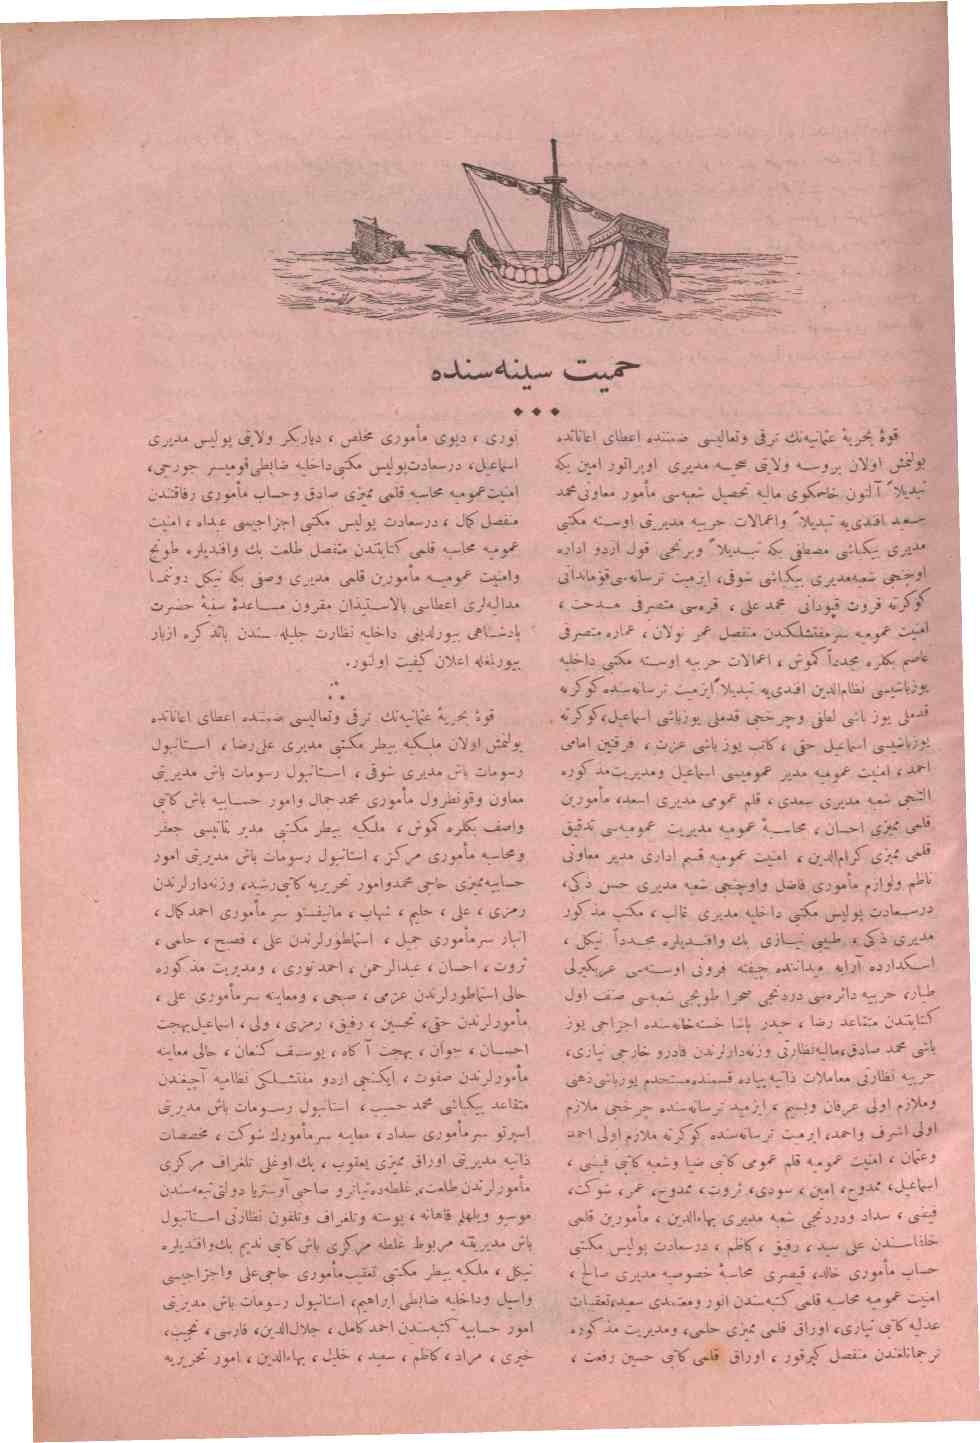 حمیت سینه‌سنده
قوۀ بحریۀ عثمانیه‌نك ترقی وتعالیسی ضمننده اعطای اعاناتده
بولنمش اولان بروسه ولایتی صحیه مدیری اوپراتور امین بكه
تبدیلاً آلتون خاصكوی مالیه تحصیل شعبه‌سی مأمور معاونی محمد
سعید افندی‌یه تبدیلاً واعمالات حربیه مدیریتی اوسته مكتبی
مدیری بیكباشی مصطفی بكه تبدیلاً وبرنجی قول اردو اداره
اوچنجی شعبه‌مدیری بیكباشی شوقی، ایزمیت ترسانه‌سی‌قومندانی
كوكرته قروت قپودانی محمد علی ، قره‌سی متصرفی مدحت ،
امنیت عمومیه سرمفتشلكندن منفصل عمر نولان ، عماره متصرفی
عاصم بكلره مجدداً كموش ، اعمالات حربیه اوسته مكتبی داخلیه
یوزباشیسی نظام‌الدین افندی‌یه تبدیلاً ایزمیت ترسانه‌سنده كوكرته
قدملی یوز باشی لطفی وچرخجی قدملی یوزباشی اسماعیل،كوكرته
یوزباشیسی اسماعیل حقی ، كاتب یوز باشی عزت ، فرقتین امامی
احمد ، امنیت عمومیه مدیر عمومیسی اسماعیل ومدیریت‌مذكوره
التنجی شعبه مدیری سعدی ، قلم عمومی مدیری اسعد، مأمورین
قلمی ممیزی احسان ، محاسبۀ عمومیه مدیریت عمومیه‌سی تدقیق
قلمی ممیزی كرام‌الدین ، امنیت عمومیه قسم اداری مدیر معاونی
ناظم ولوازم مأموری فاضل واوچنجی شعبه مدیری حسن ذكی،
درسعادت پولیس مكتبی داخلیه مدیری غالب ، مكتب مذكور
مدیری ذكی ، طبیبی نیازی بك وافندیلره مجدداً نیكل ،
اسكدارده آرایه میداننده چفته فرونی اوسته‌سی عربكیرلی
طبار، حربیه دائره‌سی دردنجی صحرا طوپجی شعبه‌سی صنف اول
كتابتندن متقاعد رضا ، حیدر پاشا خسته‌خانه‌سنده اجزاجی یوز
باشی محمد صادق،مالیه‌نظارتی وزنه‌دارلرندن قادرو خارجی نیازی،
حربیه نظارتی معاملات ذاتیه پیاده قسمنده‌مستخدم یوزباشی‌ذهنی
وملازم اولی عرفان ووسیم ، ایزمید ترسانه‌سنده چرخجی ملازم
اولی اشرف واحمد، ایزمیت ترسانه‌سنده كوكرته ملازم اولی احمد
وعثمان ، امنیت عمومیه قلم عمومی كاتبی ضیا وشعبه كاتبی فیضی ،
اسماعیل، ممدوح، امین ، سودی، ثروت، ممدوح، عمر، شوكت،
فیضی ، سداد ودردنجی شعبه مدیری بهاءالدین ، مأمورین قلمی
خلفاسندن علی سید ، رفیق ، كاظم ، درسعادت پولیس مكتبی
حساب مأموری خالد، قیصری محاسبۀ خصوصیه مدیری صالح ،
امنیت عمومیه محاسبه قلمی كتبه‌سندن انور ومعتمدی سعید،تعقیبات
عدلیه كاتبی نیازی، اوراق قلمی ممیزی حلمی، ومدیریت مذكوره
ترجمانلغندن منفصل كیرقور ، اوراق قلمی كاتبی حسین رفعت ،
نوری ، دیوی مأموری مخلص ، دیاربكر ولایتی پولیس مدیری
اسماعیل، درسعادت‌پولیس مكتبی‌داخلیه ضابطی‌قومیسر جورجی،
امنیت‌عمومیه محاسبه قلمی ممیزی صادق وحساب مأموری رفاقتندن
منفصل كمال ، درسعادت پولیس مكتبی اجزاجیسی عبداه ، امنیت
عمومیه محاسبه قلمی كتابتندن منفصل طلعت بك وافندیلره طونج
وامنیت عمومیه مأمورین قلمی مدیری وصفی بكه نیكل دونما
مدالیه‌لری اعطاسی بالاستیذان مقرون مساعدۀ سنیۀ حضرت
پادشاهی بیورلدیغی داخلیه نظارت جلیله‌سندن باتذكره ازبار
بیورلمغله اعلان كیفیت اولنور.
قوۀ بحریۀ عثمانیه‌نك ترقی وتعالیسی ضمننده اعطای اعاناتده
بولنمش اولان ملكیه بیطر مكتبی مدیری علی‌رضا ، استانبول
رسومات باش مدیری شوقی ، استانبول رسومات باش مدیریتی
معاون وقونطرول مأموری محمدجمال وامور حسابیه باش كاتبی
واصف بكلره كموش ، ملكیه بیطر مكتبی مدیر ثانیسی جعفر
ومحاسبه مأموری مركز ، استانبول رسومات باش مدیریتی امور
حسابیه‌ممیزی حاجی محمدوامور تحریریه كاتبی‌رشید، وزنه‌دارلرندن
رمزی ، علی ، حلیم ، شهاب ، مانیفستو سر مأموری احمدكمال ،
انبار سرمأموری جمیل ، استیماطورلرندن علی ، فصیح ، حامی ،
ثروت ، احسان ، عبدالرحمن ، احمدنوری ، ومدیریت مذكوره
حالی استیماطورلرندن عزمی ، صبحی ، ومعاینه سرمأموری علی ،
مأمورلرندن حقی، تحسین ، رفیق، رمزی ، ولی ، اسماعیل‌بهجت
احسان ، جوان ، بهجت آكاه ، یوسف كنعان ، حالی معاینه
مأمورلرندن صفوت ، ایكنجی اردو مفتشلكی نظامیه آجیغندن
متقاعد بیكباشی محمد حسیب ، استانبول رسومات باش مدیریتی
اسپرتو سرمأموری سداد ، معاینه سرمأمورك شوكت ، مخصصات
ذاتیه مدیریتی اوراق ممیزی یعقوب ، بك اوغلی تلغراف مركزی
مأمورلرندن طلعت، غلطه‌ده‌تیاترو صاحبی آوستریا دولتی‌تبعه‌سندن
موسیو ویلهلم قاهانه ، پوسته وتلغراف وتلفون نظارتی استانبول
باش مدیریتنه مربوط غلطه مركزی باش‌كاتبی ندیم بك‌وافندیلره
نیكل ، ملكیه بیطر مكتبی تعقیب‌مأموری حاجی‌علی واجزاجیسی
واسیل وداخلیه ضابطی ابراهیم، استانبول رسومات باش مدیریتی
امور حسابیه كتبه‌سندن احمدكامل ، جلال‌الدین، فارسی ، نجیب،
خیری ، مراد ، كاظم ، سعید ، خلیل ، بهاءالدین ، امور تحریریه